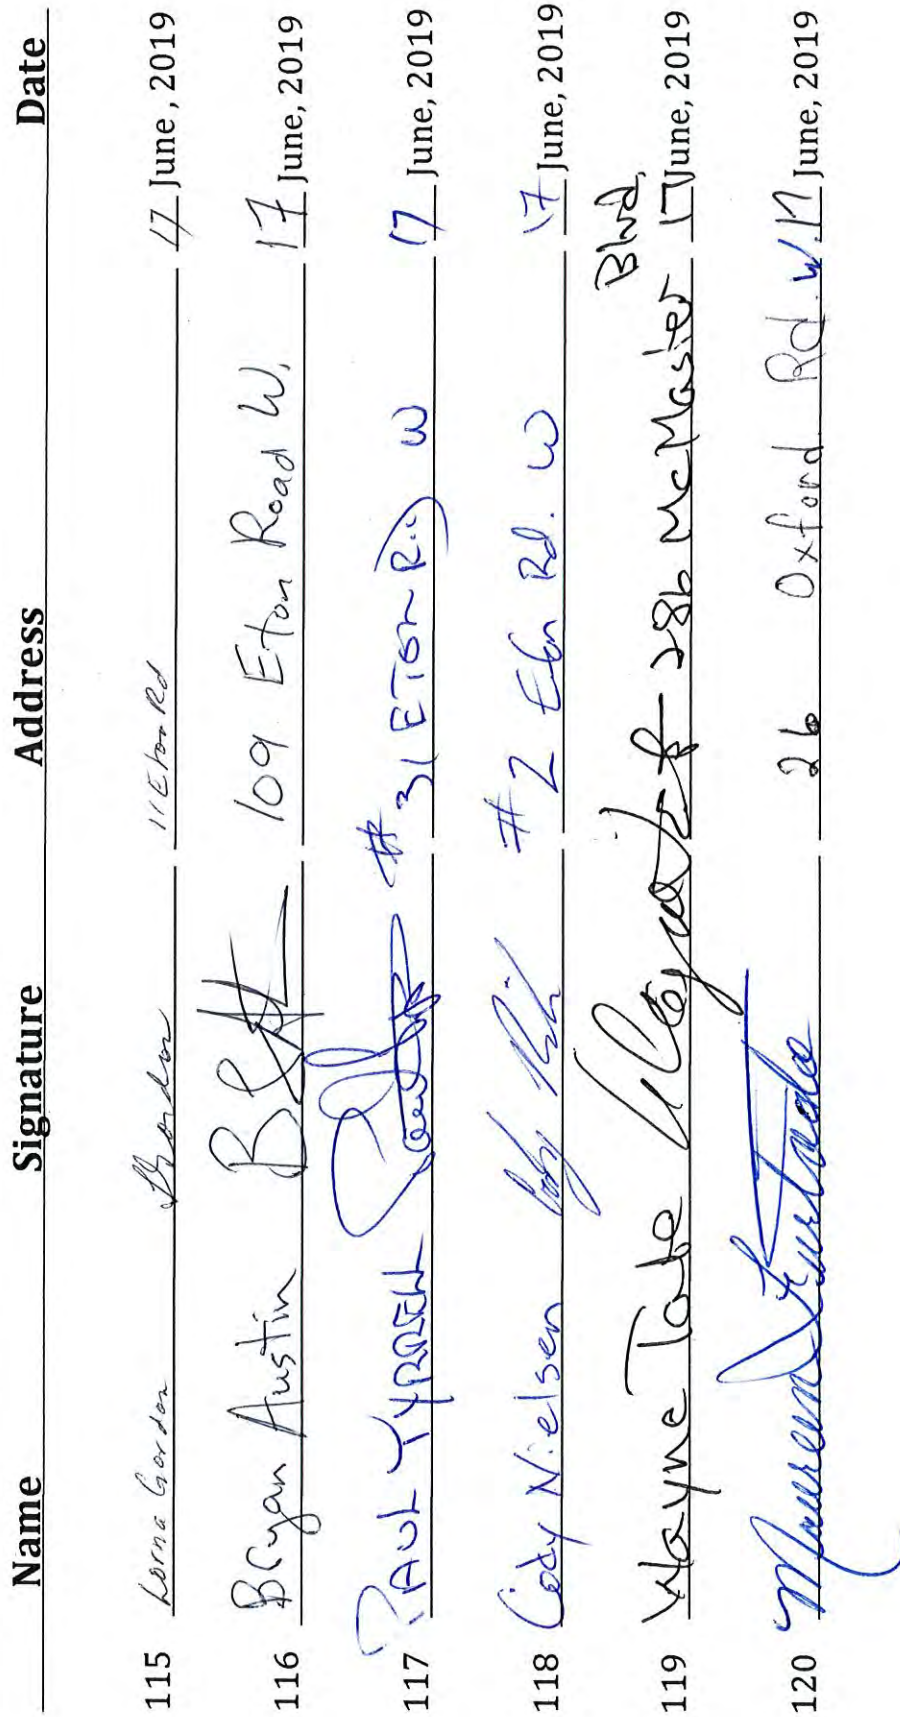 Name Signature Address Date
115 Lorna Gordon LGordon 11 Eton Rd 17 June, 2019
116 Bryan Austin 109 Eton Road W. 17 June, 2019
117 PAUL TYRRELL # 31 ETON Rd W 17 June, 2019
118 Cody Nielsen # 2 Eton Rd. W 17 June, 2019
119 Wayne Tate 286 McMaster Blvd. 17 June, 2019
120 Maureen Furtado 26 Oxford Rd. W. 17 June, 2019